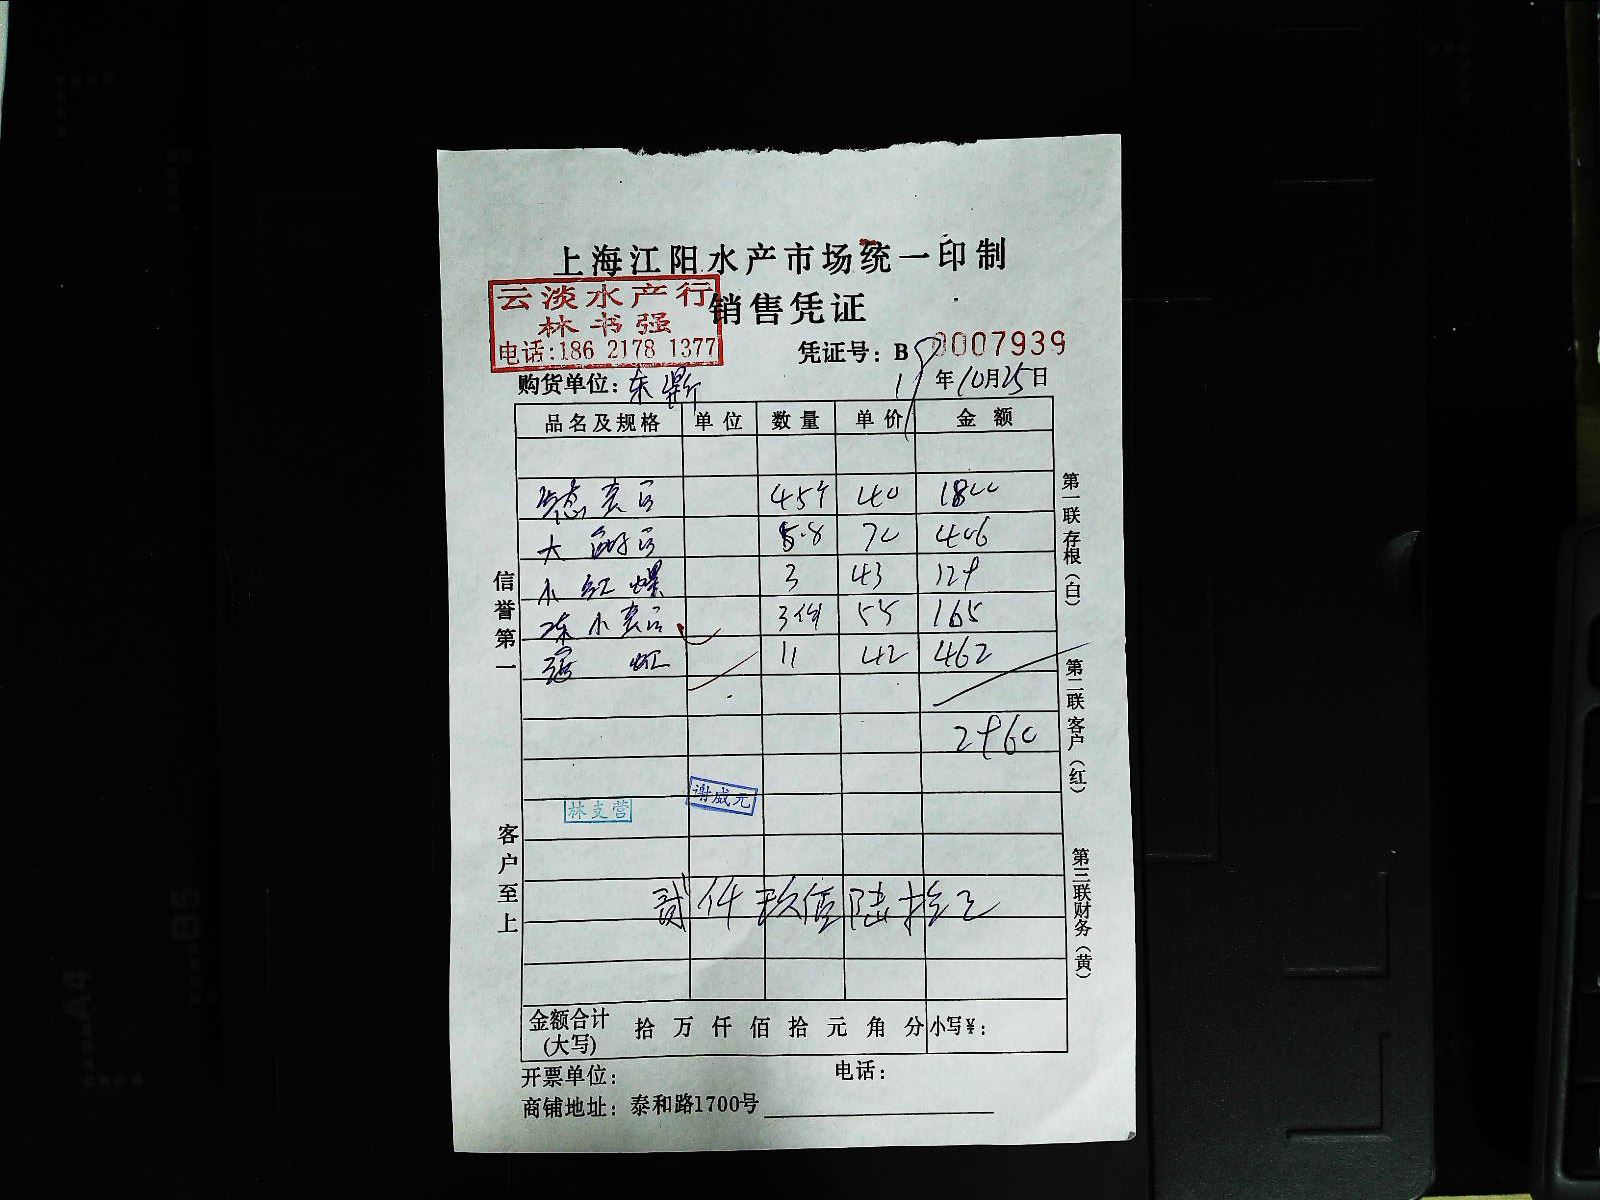 上海江阳水产市场统一印制
云淡水产行
林书强
电话:186 2178 1377
销售凭证
凭证号: B 0007939
购货单位: 东鼎
19 年 10 月 25 日
品名及规格 单位 数量 单价 金额
45个 40 1800
大 5.8 70 406
小红螺 3 43 129
冻小 3件 55 165
11 42 462
2960
林支营
谢成元
贰仟玖佰陆拾元
金额合计(大写) 拾 万 仟 佰 拾 元 角 分 小写¥:
开票单位: 电话:
商铺地址: 泰和路1700号
信誉第一
客户至上
第一联存根(白)
第二联客户(红)
第三联财务(黄)